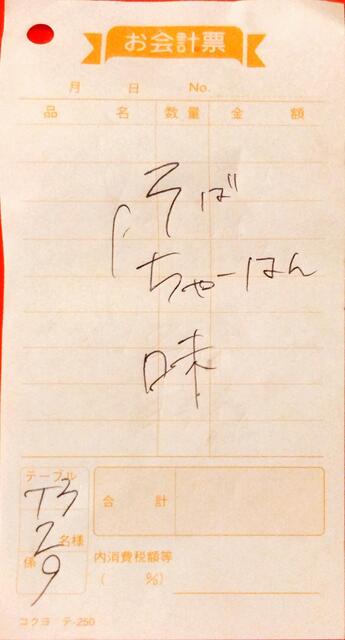 お会計票
月 日 No.
品 名 数量 金 額
そば
ちゃーはん
味
テーブル
T3
2 名様
係 9
合 計
内消費税額等
( %)
コクヨ テ-250